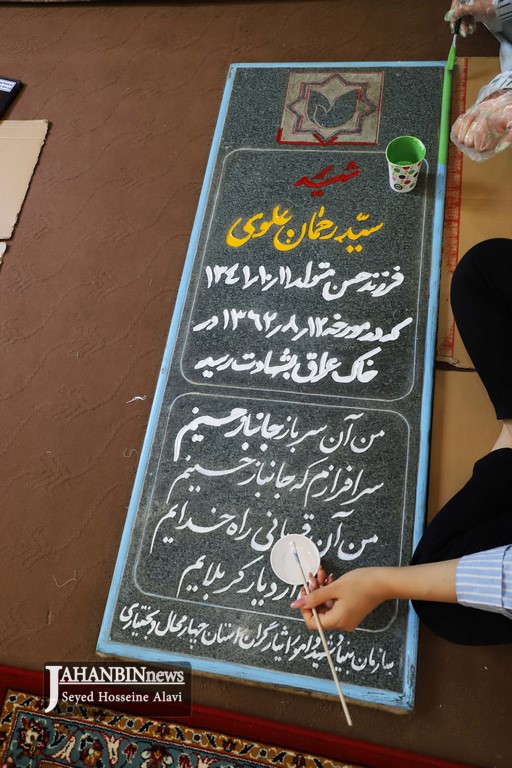 شهید
سیّد رحمان علوی
فرزند حسن متولد ۱۳۴۱٫۱۰٫۱۱
که در مورخه ۱۳۶۲٫۸٫۱۲ در
خاک عراق بشهادت رسید
من آن سرباز جانباز حسینم
سرافرازم که جانباز حسینم
من آن قربانی راه خدایم
دیار کربلایم
سازمان بنیاد شهید و امور ایثارگران استان چهارمحال و بختیاری
JAHANBINnews
Seyed Hosseine Alavi